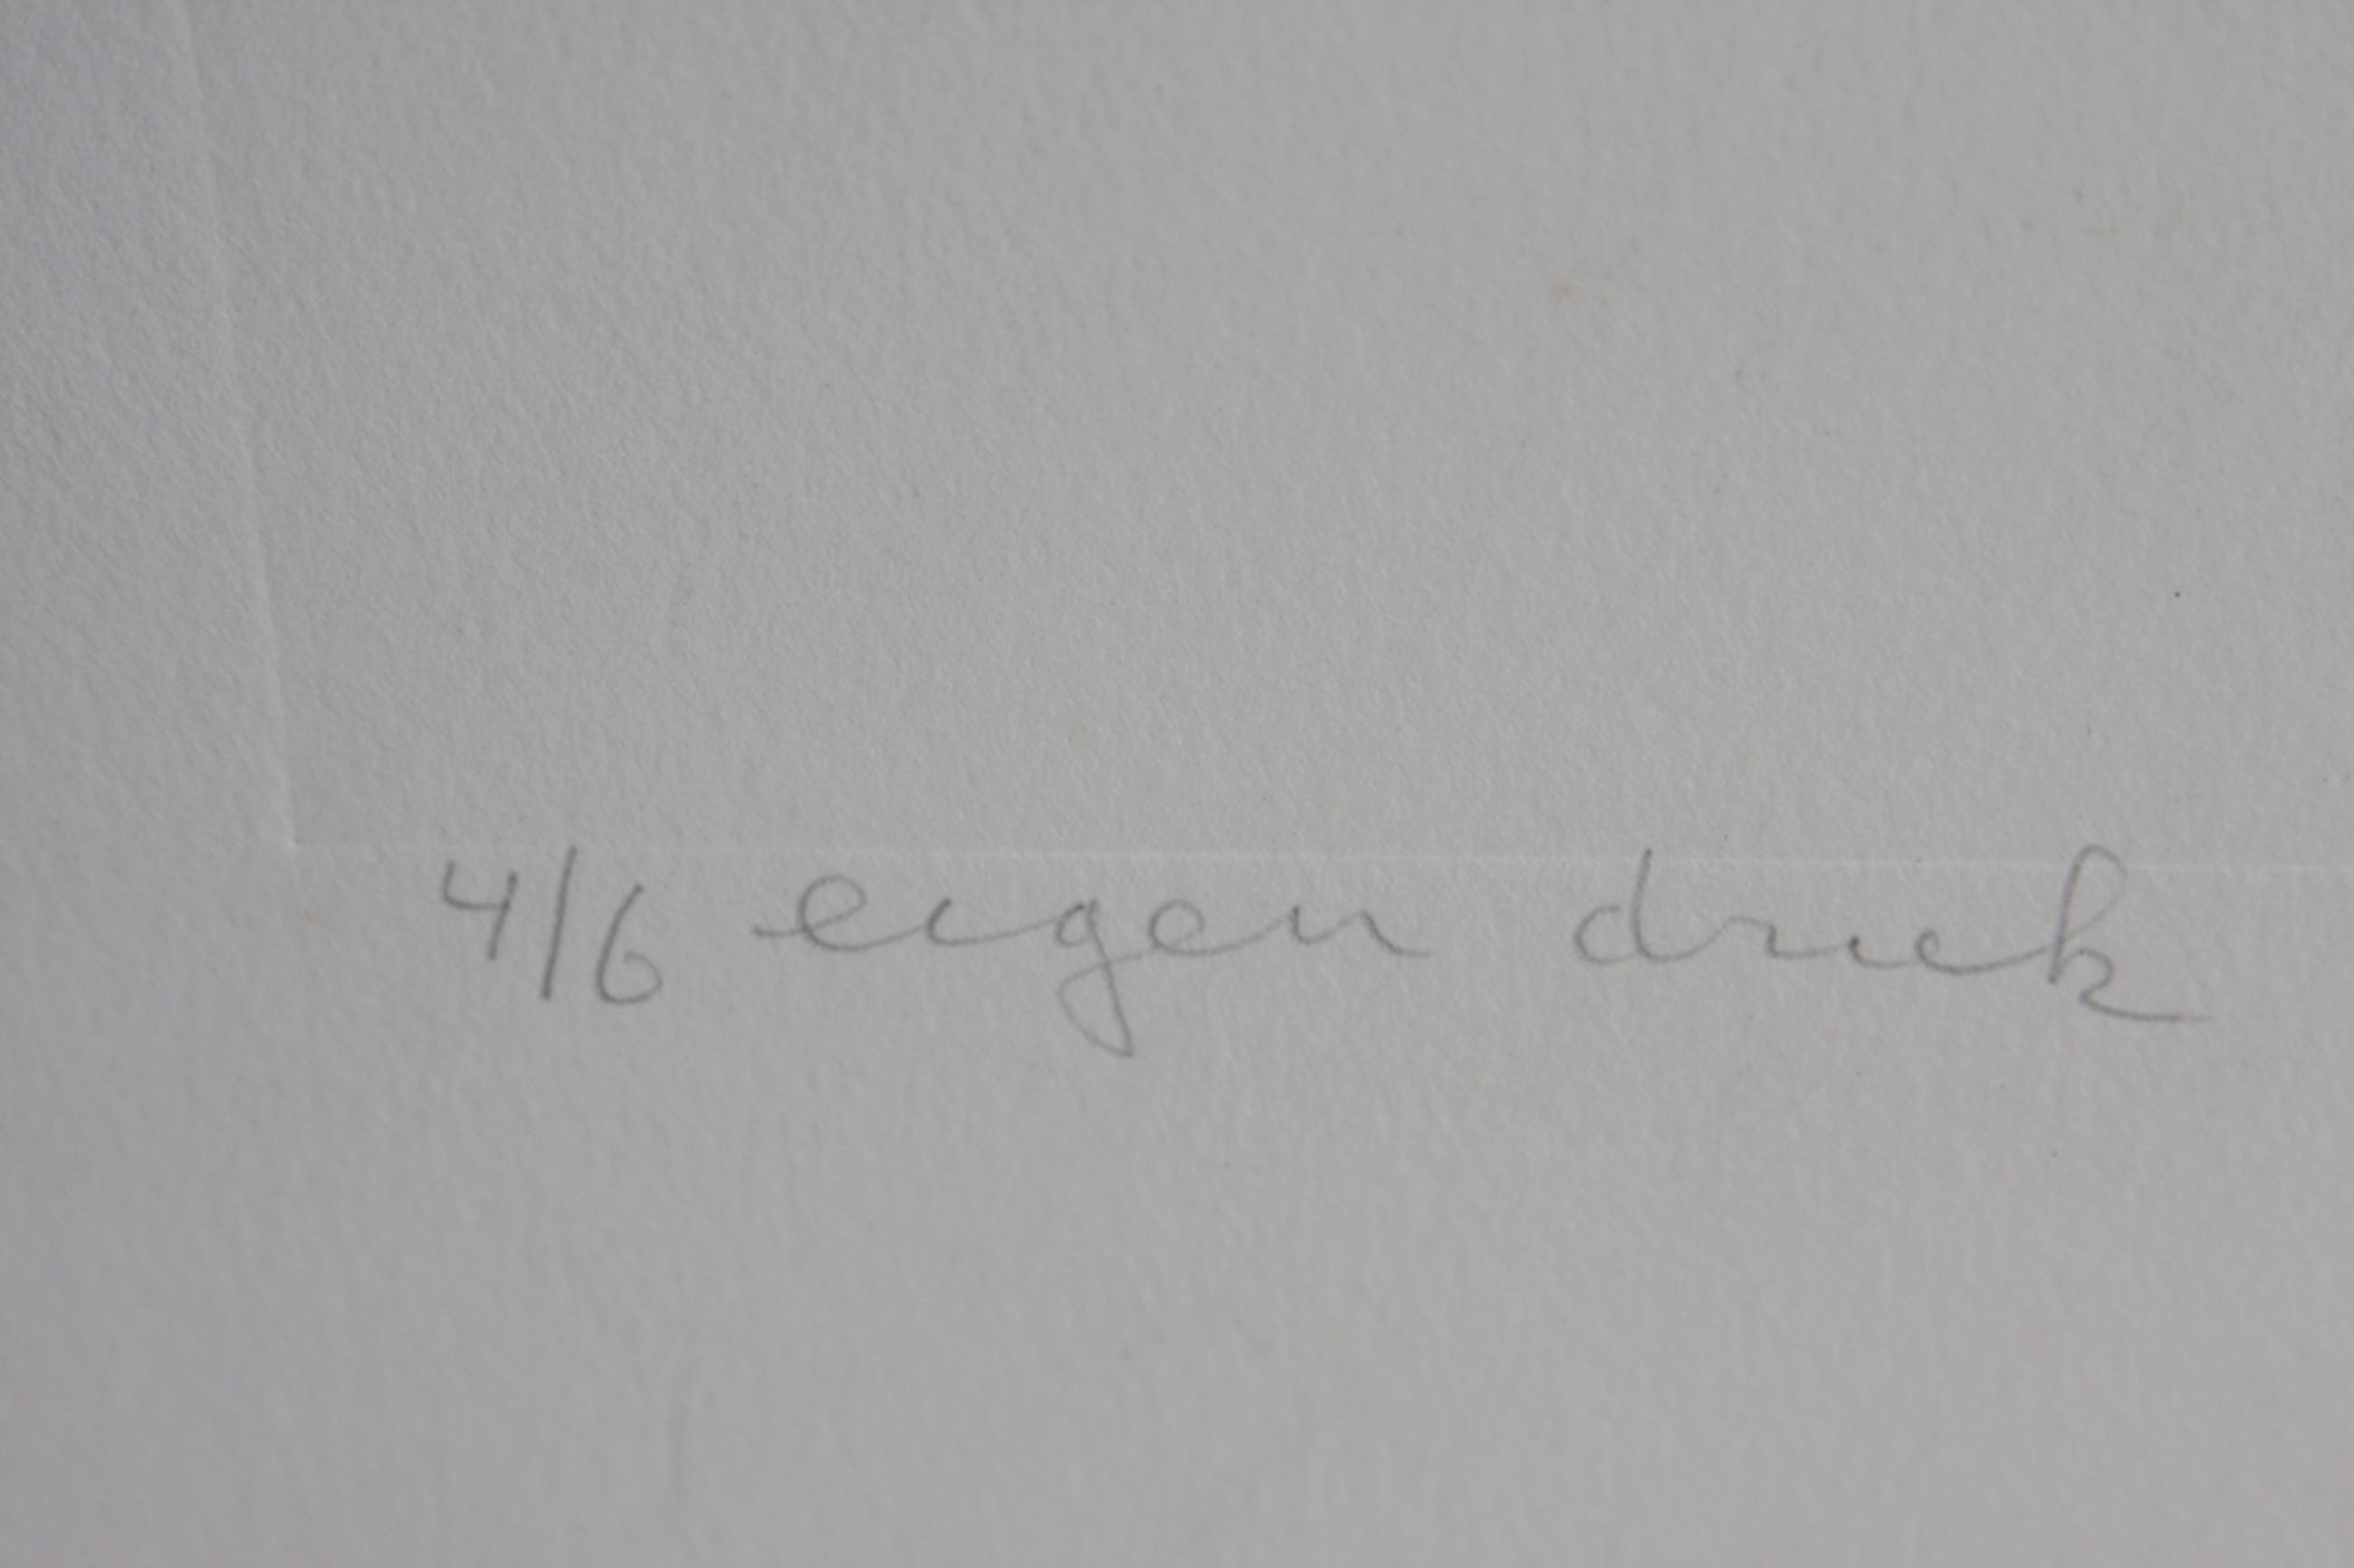 4/6 eigen druk